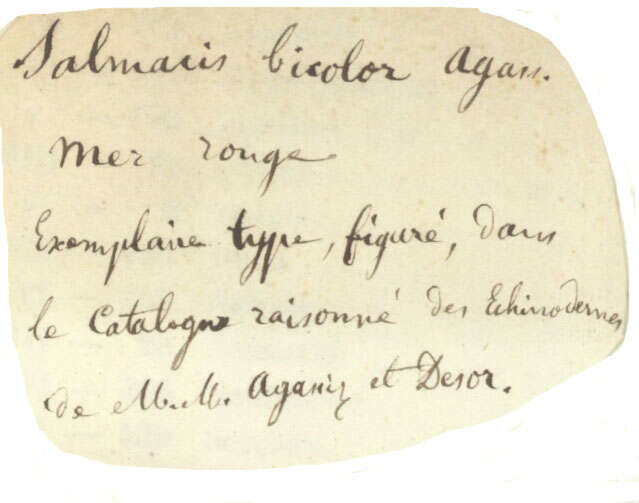 Salmacis bicolor Agass.
Mer rouge
Exemplaire type, figuré, dans
le Catalogue raisonné des Echinodermes
de M.M. Agassiz et Desor.